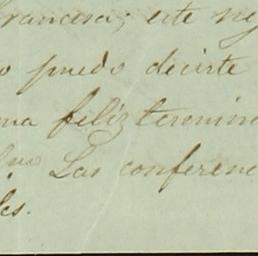 francesa; este ne
o puedo decirte
na feliz termin
Las conferenc
les.